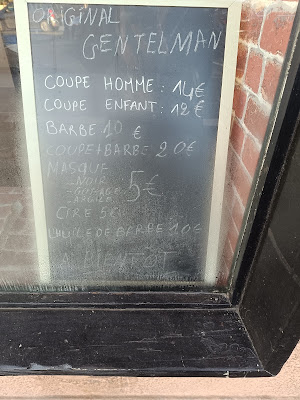 ORIGINAL
GENTELMAN
COUPE HOMME : 14€
COUPE ENFANT : 12€
BARBE 10 €
COUPE+BARBE 20€
MASQUE
-NOIR
5€
-ARGILE
CIRE 5€
L'HUILE DE BARBE 10€
A BIENTOT